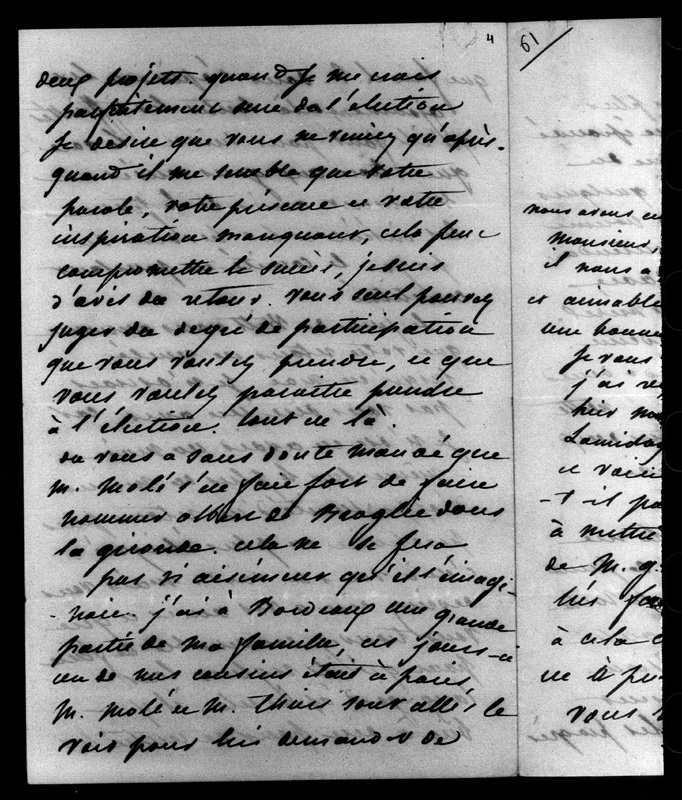 4
deux projets. quand je me crois
parfaitement sure de l'élection
Je desire que vous ne veniez qu'après.
quand il me semble que votre
parole, votre présence et votre
inspiration manquant, cela peut
compromettre le succès, je suis
d'avis du retour. Vous seul pouvez
juger du degré de participation
que vous voulez prendre, et que
vous voulez paraître prendre
à l'élection. tout de là.
on vous a sans doute mandé que
M. Molé s'en fait fort de faire
nommer Albert de Broglie dans
la gironde. cela ne se fera
pas si aisément qu'il l'imagi-
-naie. j'ai à Bordeaux une grande
partie de ma famille, ces jours-ci
un de mes cousins était à paris,
M. Molé et M. Thiers sont allés le
voir pour lui demander de
61
nous avons
monsieur
il nous a
et aimable
une bonne
Je vous
j'ai
hier
et voici
-t-il pa
à mettre
de M. g
à cela
vous